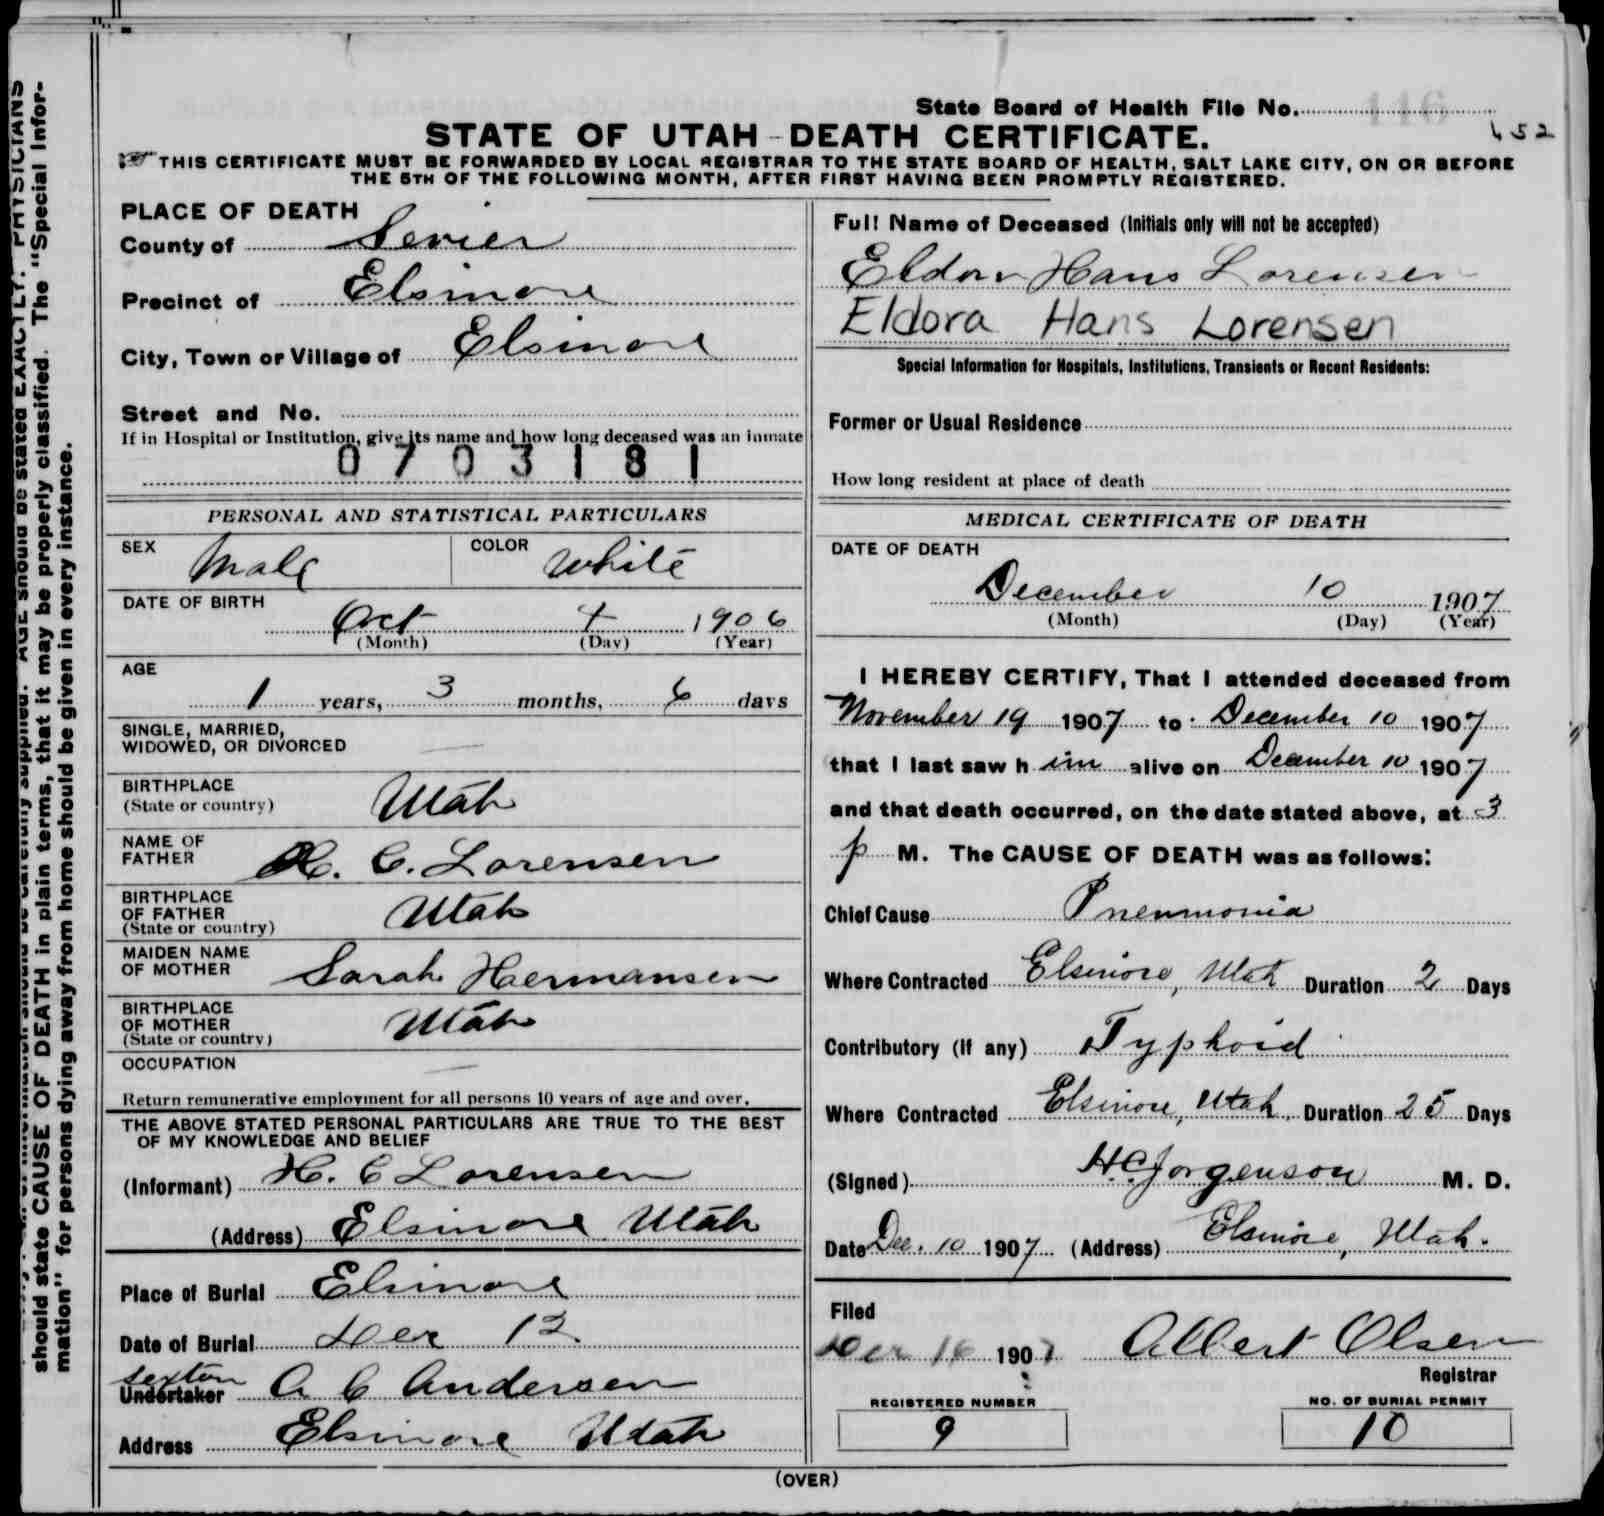 State Board of Health File No. 116
452
STATE OF UTAH-DEATH CERTIFICATE.
THIS CERTIFICATE MUST BE FORWARDED BY LOCAL REGISTRAR TO THE STATE BOARD OF HEALTH, SALT LAKE CITY, ON OR BEFORE
THE 5TH OF THE FOLLOWING MONTH, AFTER FIRST HAVING BEEN PROMPTLY REGISTERED.
PLACE OF DEATH
County of Sevier
Precinct of Elsinore
City, Town or Village of Elsinore
Street and No.
If in Hospital or Institution, give its name and how long deceased was an inmate
0703181
PERSONAL AND STATISTICAL PARTICULARS
SEX Male COLOR White
DATE OF BIRTH
Oct 4 1906
(Month) (Day) (Year)
AGE
1 years, 3 months, 6 days
SINGLE, MARRIED,
WIDOWED, OR DIVORCED
BIRTHPLACE
(State or country) Utah
NAME OF
FATHER H. C. Lorensen
BIRTHPLACE
OF FATHER
(State or country) Utah
MAIDEN NAME
OF MOTHER Sarah Hermansen
BIRTHPLACE
OF MOTHER
(State or country) Utah
OCCUPATION
Return remunerative employment for all persons 10 years of age and over.
THE ABOVE STATED PERSONAL PARTICULARS ARE TRUE TO THE BEST
OF MY KNOWLEDGE AND BELIEF
(Informant) H. C Lorensen
(Address) Elsinore Utah
Place of Burial Elsinore
Date of Burial Dec 12
sexton
Undertaker A C Andersen
Address Elsinore Utah
Full Name of Deceased (Initials only will not be accepted)
Eldora Hans Lorensen
Eldora Hans Lorensen
Special Information for Hospitals, Institutions, Transients or Recent Residents:
Former or Usual Residence
How long resident at place of death
MEDICAL CERTIFICATE OF DEATH
DATE OF DEATH
December 10 1907
(Month) (Day) (Year)
I HEREBY CERTIFY, That I attended deceased from
November 19 1907 to December 10 1907
that I last saw h im alive on December 10 1907
and that death occurred, on the date stated above, at 3
p M. The CAUSE OF DEATH was as follows:
Chief Cause Pneumonia
Where Contracted Elsinore, Utah Duration 2 Days
Contributory (If any) Typhoid
Where Contracted Elsinore, Utah, Duration 25 Days
(Signed) H.C. Jorgenson M. D.
Date Dec. 10 1907 (Address) Elsinore, Utah.
Filed
Dec 16 1907 Albert Olsen
Registrar
REGISTERED NUMBER
9
NO. OF BURIAL PERMIT
10
(OVER)
should state CAUSE OF DEATH in plain terms, that it may be properly classified. The "Special Infor-
mation" for persons dying away from home should be given in every instance.